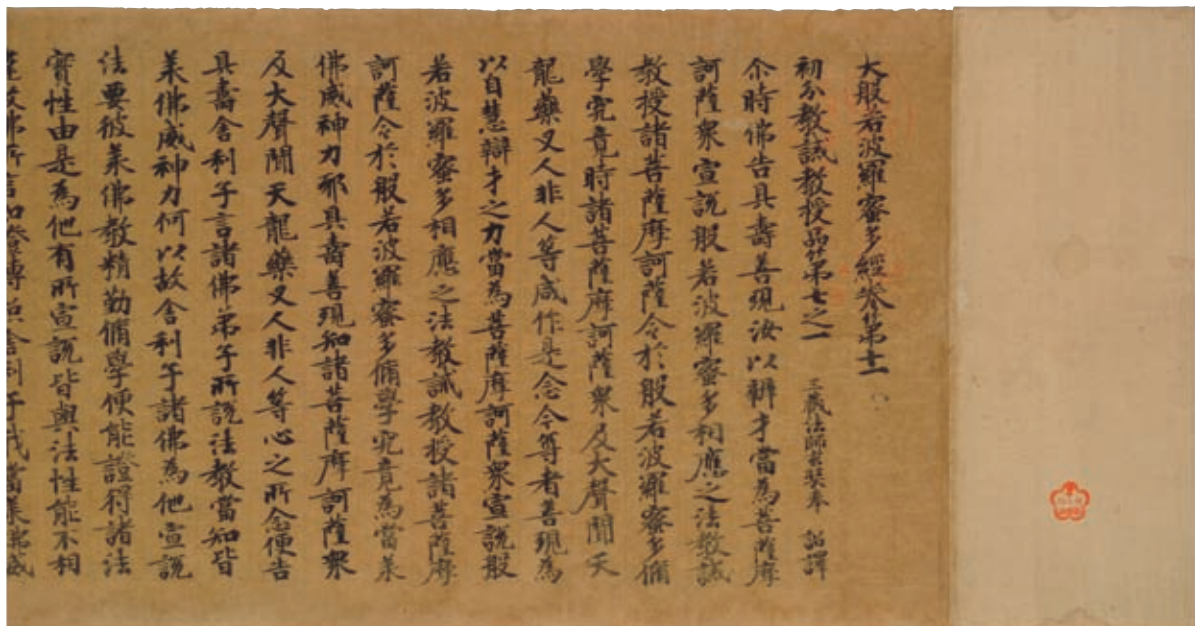 大般若波羅蜜多經卷第十一
初分教誡教授品第七之一 三藏法師玄奘奉 詔譯
尒時佛告具壽善現汝以辯才當為菩薩摩
訶薩衆宣説般若波羅蜜多相應之法教誡
教授諸菩薩摩訶薩令於般若波羅蜜多脩
學究竟時諸菩薩摩訶薩衆及大聲聞天
龍藥叉人非人等咸作是念今尊者善現為
以自慧辯才之力當為菩薩摩訶薩衆宣説般
若波羅蜜多相應之法教誡教授諸菩薩摩
訶薩令於般若波羅蜜多脩學究竟為當承
佛威神力邪具壽善現知諸菩薩摩訶薩衆
及大聲聞天龍藥叉人非人等心之所念便告
具壽舍利子言諸佛弟子所説法教當知皆
承佛威神力何以故舍利子諸佛為他宣説
法要彼承佛教精勤脩學便能證得諸法
實性由是為他有所宣説皆與法性能不相